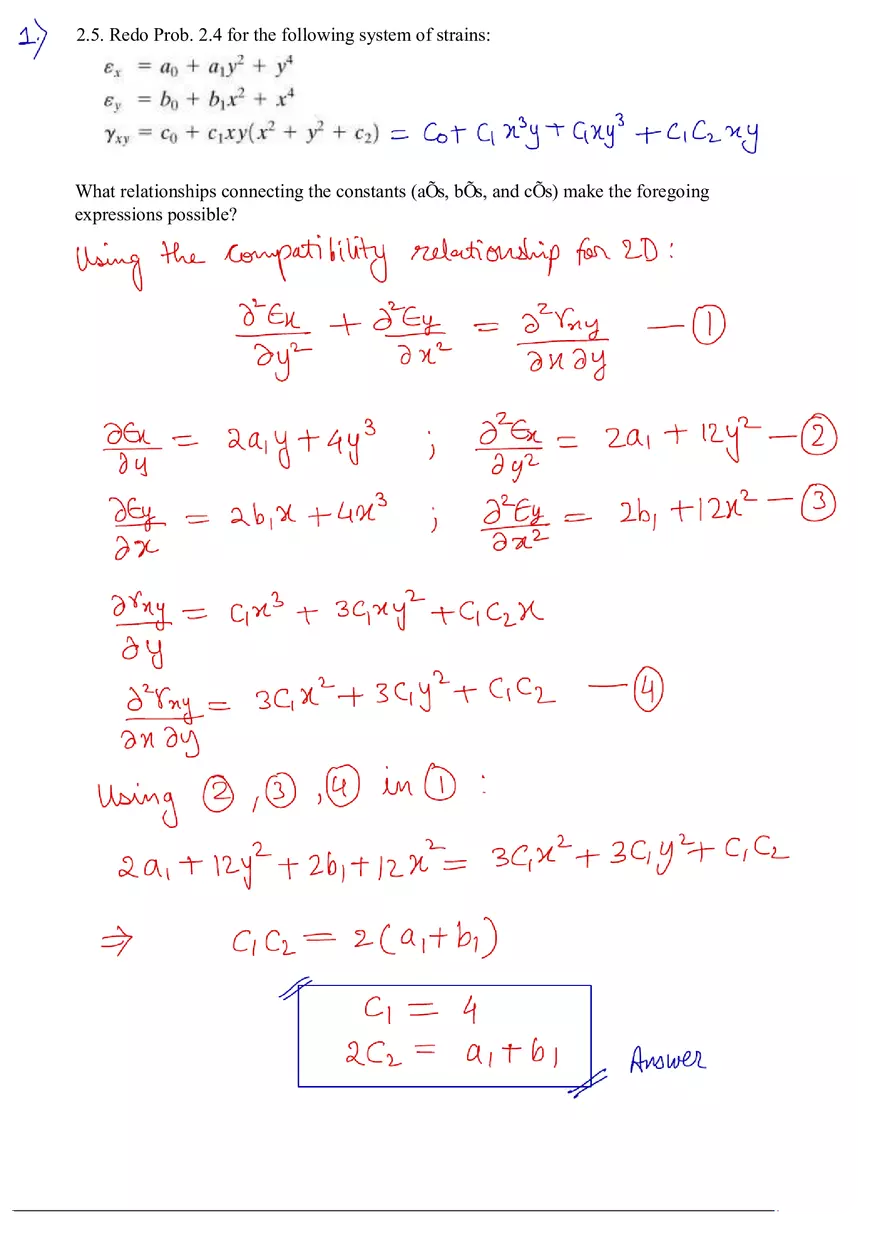 1.) 2.5. Redo Prob. 2.4 for the following system of strains:
εx = a₀ + a₁y² + y⁴
εy = b₀ + b₁x² + x⁴
γxy = c₀ + c₁xy(x² + y² + c₂) = C₀ + C₁x³y + C₁xy³ + C₁C₂xy
What relationships connecting the constants (aÕs, bÕs, and cÕs) make the foregoing
expressions possible?
Using the compatibility relationship for 2D :
∂²Ɛx/∂y² + ∂²Ɛy/∂x² = ∂²γxy/∂x∂y — ①
∂Ɛx/∂y = 2a₁y + 4y³ ; ∂²Ɛx/∂y² = 2a₁ + 12y² — ②
∂Ɛy/∂x = 2b₁x + 4x³ ; ∂²Ɛy/∂x² = 2b₁ + 12x² — ③
∂γxy/∂y = C₁x³ + 3C₁xy² + C₁C₂x
∂²γxy/∂x∂y = 3C₁x² + 3C₁y² + C₁C₂ — ④
Using ② , ③ , ④ in ① :
2a₁ + 12y² + 2b₁ + 12x² = 3C₁x² + 3C₁y² + C₁C₂
⇒ C₁C₂ = 2(a₁ + b₁)
C₁ = 4
2C₂ = a₁ + b₁ Answer